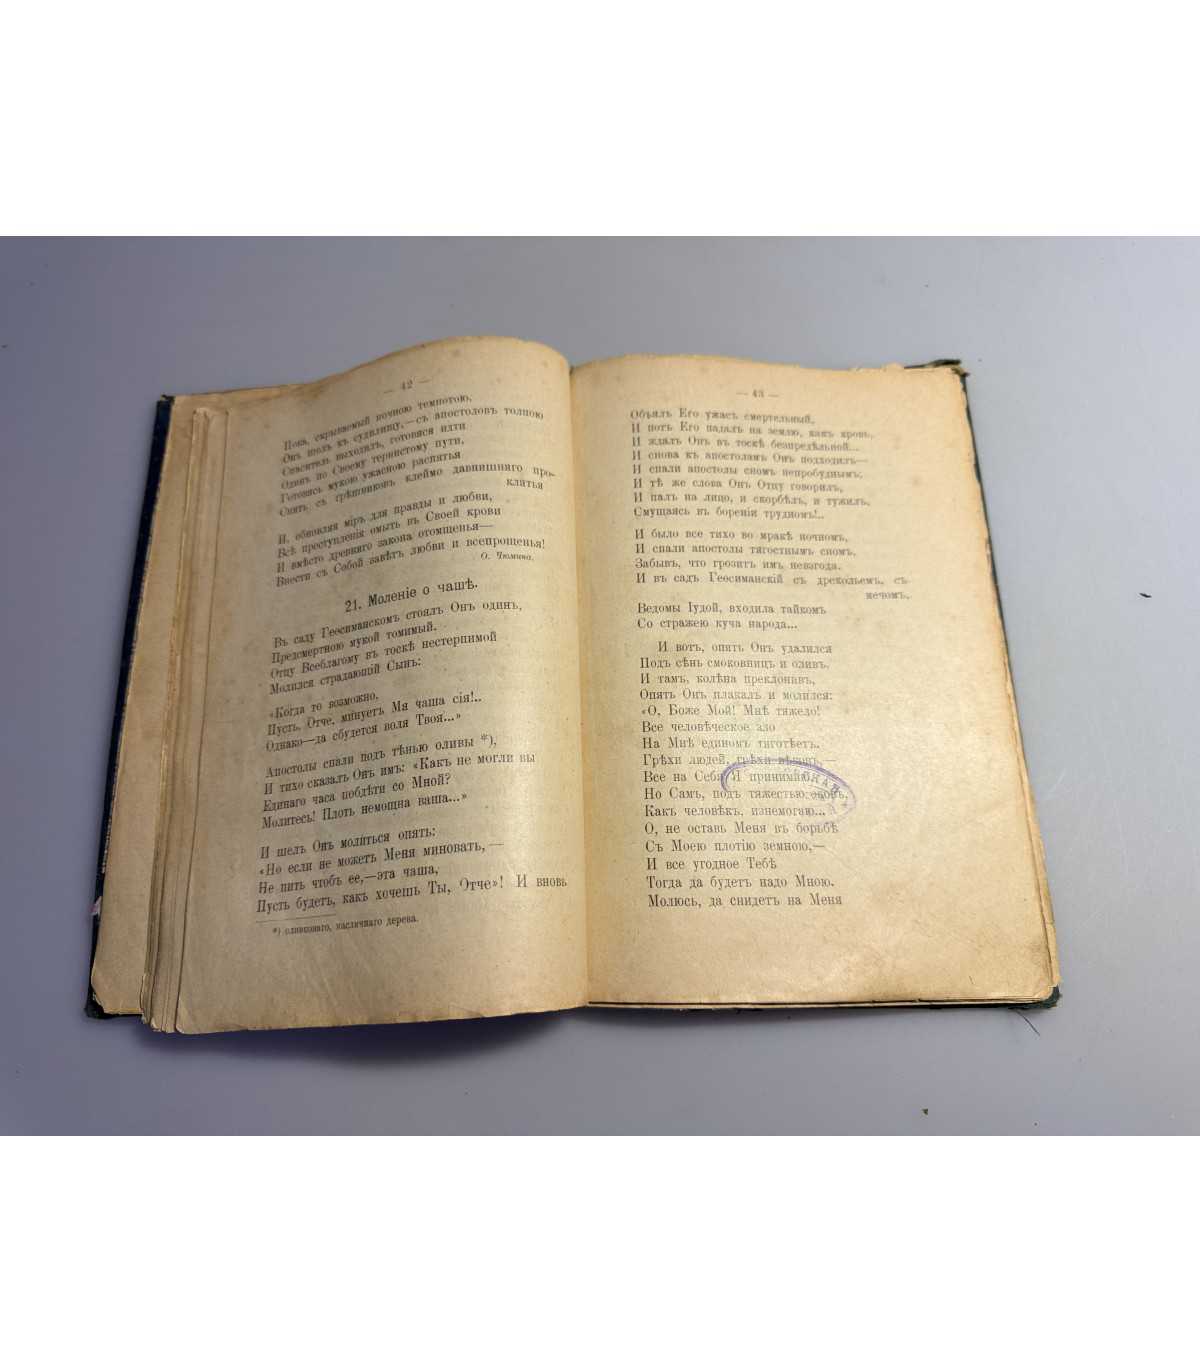 — 42 —
Пока, скрываемый ночною темнотою,
Онъ шелъ къ судилищу,—съ апостоловъ толпою
Спаситель выходилъ, готовяся идти
Одинъ по Своему тернистому пути,
Готовясь мукою ужасною распятья
Снять съ грѣшниковъ клеймо давнишняго про-
клятья
И, обновляя міръ для правды и любви,
Всѣ преступленія омыть въ Своей крови
И вмѣсто древняго закона отомщенья—
Внести съ Собой завѣтъ любви и всепрощенья!
О. Чюмина.
21. Моленіе о чашѣ.
Въ саду Геѳсиманскомъ стоялъ Онъ одинъ,
Предсмертною мукой томимый.
Отцу Всеблагому въ тоскѣ нестерпимой
Молился страдающій Сынъ:
«Когда то возможно,
Пусть, Отче, минуетъ Мя чаша сія!..
Однако—да сбудется воля Твоя...»
Апостолы спали подъ тѣнью оливы *),
И тихо сказалъ Онъ имъ: «Какъ не могли вы
Единаго часа побдѣти со Мной?
Молитесь! Плоть немощна ваша...»
И шелъ Онъ молиться опять:
«Но если не можетъ Меня миновать, —
Не пить чтобъ ее,—эта чаша,
Пусть будетъ, какъ хочешь Ты, Отче»! И вновь
*) оливковаго, масличнаго дерева.
— 43 —
Объялъ Его ужасъ смертельный,
И потъ Его падалъ на землю, какъ кровь,
И ждалъ Онъ въ тоскѣ безпредѣльной...
И снова къ апостоламъ Онъ подходилъ—
И спали апостолы сномъ непробуднымъ,
И тѣ же слова Онъ Отцу говорилъ,
И палъ на лицо, и скорбѣлъ, и тужилъ,
Смущаясь въ бореніи трудномъ!..
И было все тихо во мракѣ ночномъ,
И спали апостолы тягостнымъ сномъ,
Забывъ, что грозитъ имъ невзгода.
И въ садъ Геѳсиманскій съ дрекольемъ, съ
мечомъ,
Ведомы Іудой, входила тайкомъ
Со стражею куча народа...
И вотъ, опять Онъ удалился
Подъ сѣнь смоковницъ и оливъ.
И тамъ, колѣна преклонивъ,
Опять Онъ плакалъ и молился:
«О, Боже Мой! Мнѣ тяжело!
Все человѣческое зло
На Мнѣ единомъ тяготѣетъ.
Грѣхи людей, грѣхи вѣковъ,—
Все на Себя Я принимаю,
Но Самъ, подъ тяжестью оковъ,
Какъ человѣкъ, изнемогаю...
О, не оставь Меня въ борьбѣ
Съ Моею плотію земною,—
И все угодное Тебѣ
Тогда да будетъ надо Мною.
Молюсь, да снидетъ на Меня